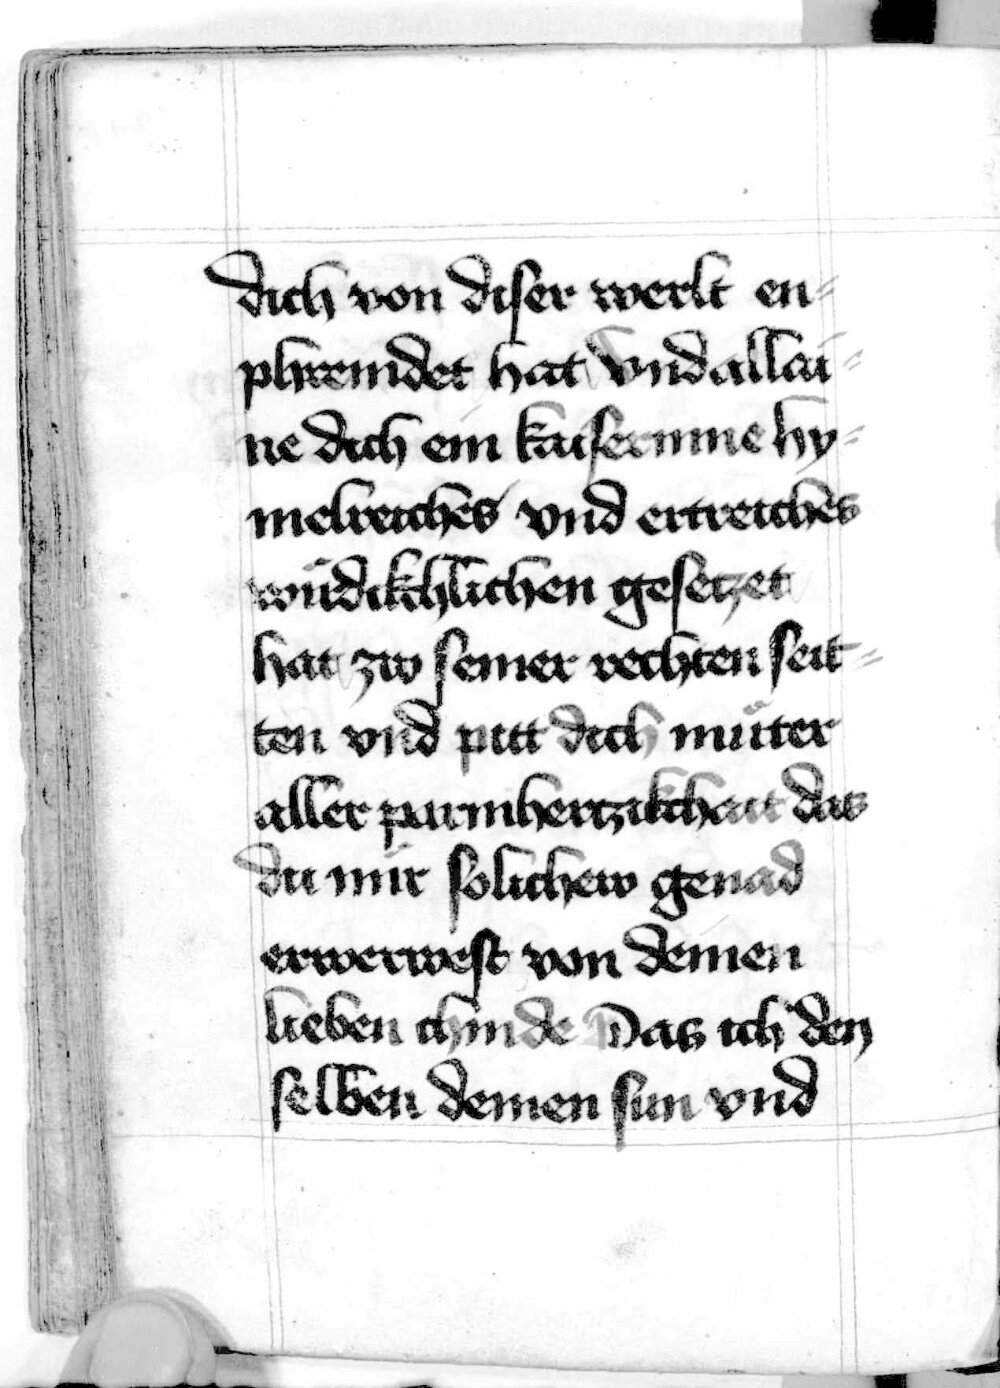 dich von diser werlt en⸗
phremdet hat Vnd allai⸗
ne dich ein kaiserinne hy⸗
melreiches vnd ertreiches
wüdikhlichen gesetzet
hat zw seiner rechten seit⸗
ten vnd pitt dich muͤter
aller parmhertzikchait das
du mir solichew genad
erwerwest von deinen
lieben chinde Das ich den
selben deinen sun vnd